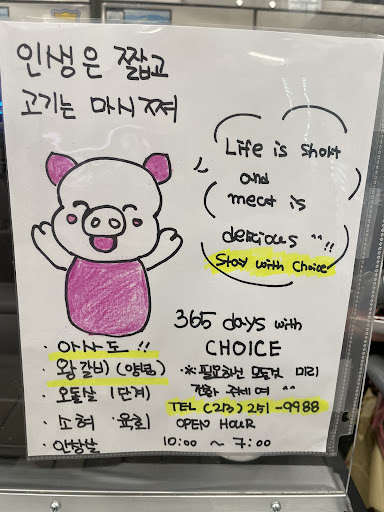 인생은 짧고
고기는 마시쪄
Life is short
and
meat is
delicious ^^!!
Stay with Choice
365 days with
CHOICE
· 아사도 !!
· 왕갈비 (양념)
· 오돌살 1단계
· 소혀 · 육회
· 안창살
·※필요하신 모든것 미리
전화 주세여 ^^
TEL (213) 251-9988
OPEN HOUR
10:00 ~ 7:00